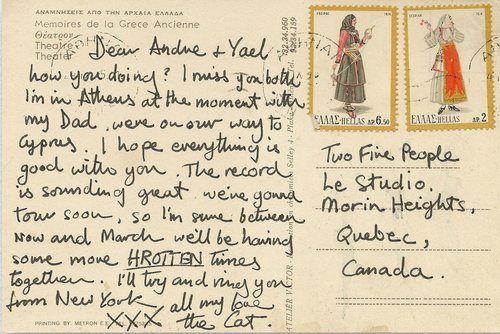 ΑΝΑΜΝΗΣΕΙΣ ΑΠΟ ΤΗΝ ΑΡΧΑΙΑ ΕΛΛΑΔΑ
Memoires de la Grece Ancienne
Θέατρον
Theatre
Theater
Dear Andre + Yael
how you doing? I miss you both
I'm in Athens at the moment with
my Dad, were on our way to
Cyprus. I hope everything is
good with you. The record
is sounding great, we're gonna
tour soon, so I'm sure between
now and March we'll be having
some more HROTTEN times
together. I'll try and ring you
from New York
all my love
XXX the Cat.
PRINTING BY: METRON E.E.
ATELIER VICTOR
32.34.960
ΕΛΛΑΣ-HELLAS ΔΡ. 6.50
ΕΛΛΑΣ-HELLAS ΔΡ. 2
Two Fine People
Le Studio,
Morin Heights,
Quebec,
Canada.